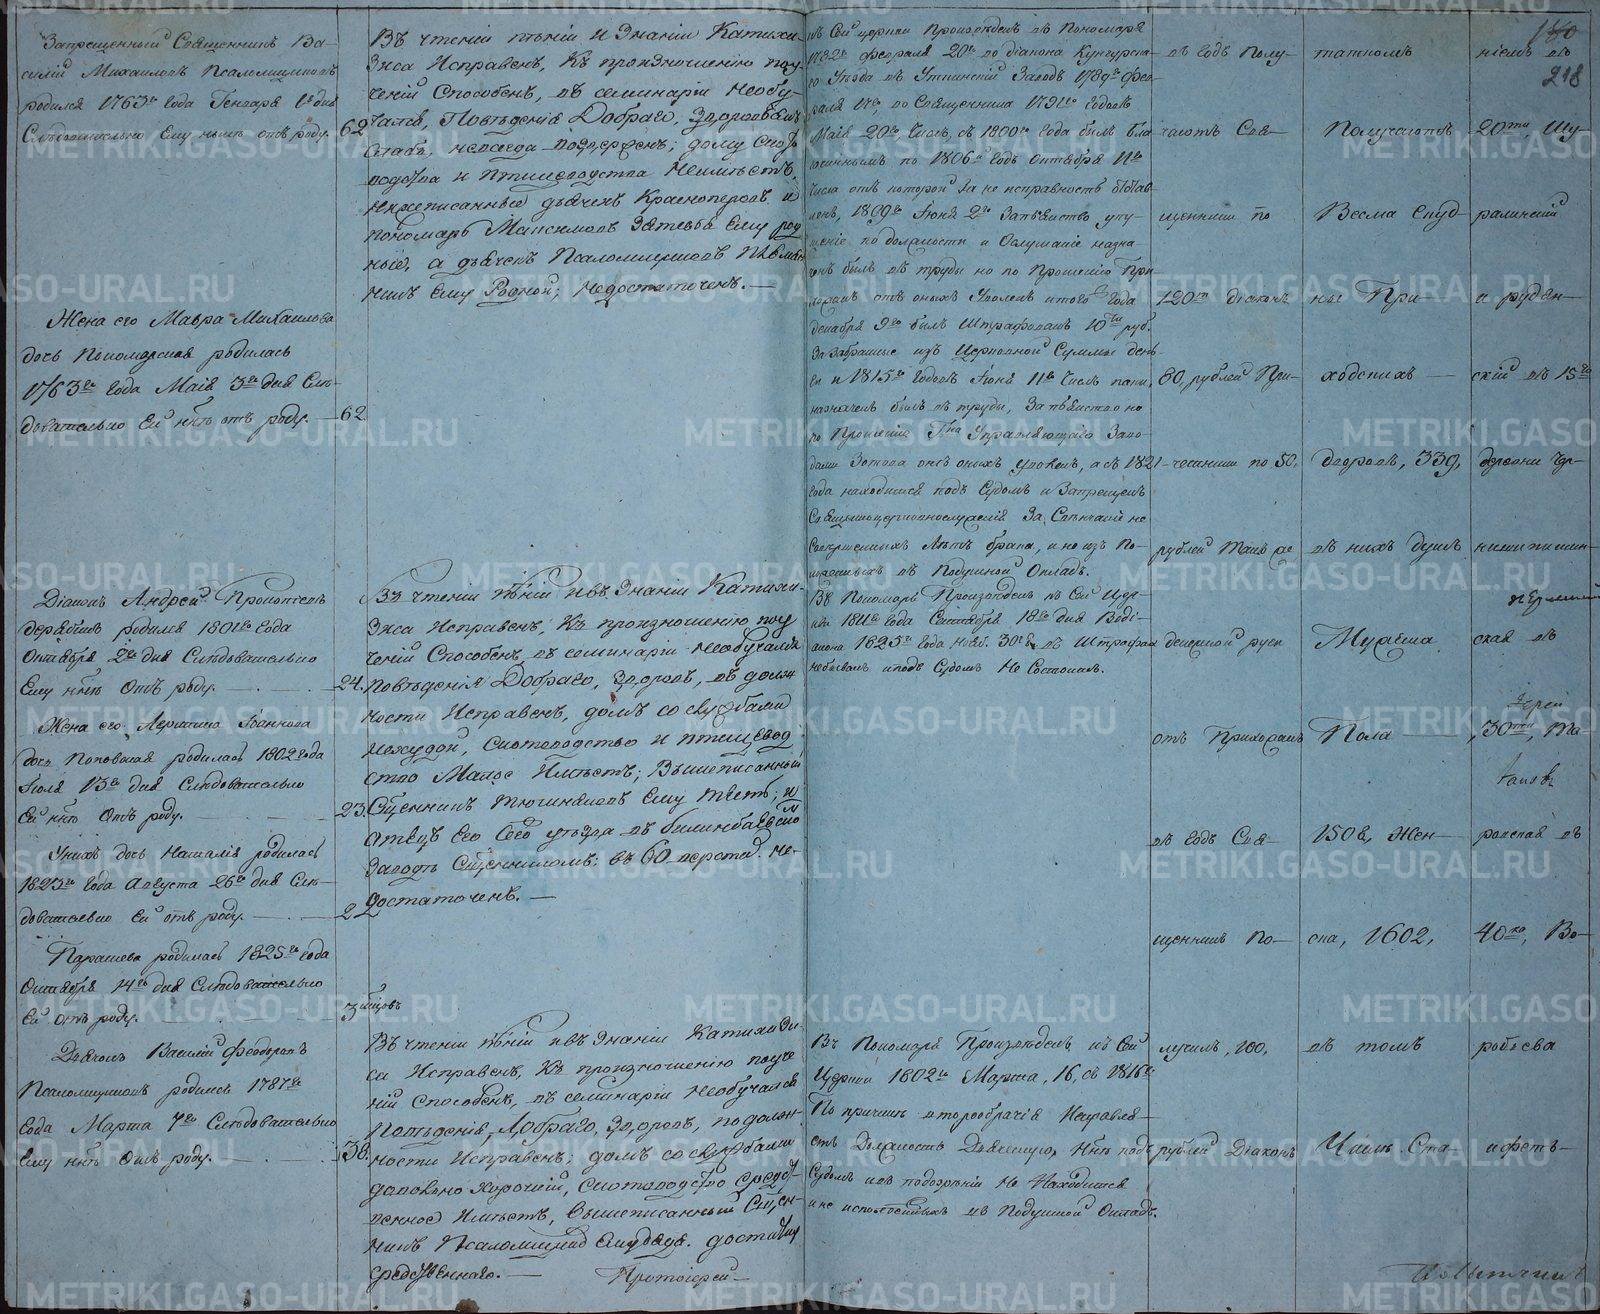 Запрещенный Священникъ Ва-
силій Михайловъ Псаломщиковъ
родился 1763го Года Генваря 1го дня
Слѣдовательно Ему нынѣ отъ роду. 62.
Жена его Мавра Михайлова
дочь Пономарская родилась
1763го Года Маія 3го дня Слѣ-
довательно Ей ннѣ отъ роду. 62.
Діаконъ Андрей Прокопіевъ
родился 1801го Года
Октября 2го дня Слѣдовательно
Ему ннѣ отъ роду. 24.
Жена его Іоаннова
дочь Поповская родилась 1802 года
Іюля 13го дня Слѣдовательно
Ей ннѣ отъ роду. 23.
Унихъ дочь Наталія родилась
1823го Года Августа 26го дня Слѣ-
довательно Ей отъ роду. 2
Параскева родилась 1825го Года
Октября 14го дня Слѣдовательно
Ей отъ роду. 3 мцовъ
Дьячокъ Василій Феодоровъ
Псаломщиковъ родился 1787го
Года Марта 7го Слѣдовательно
Ему ннѣ отъ роду. 38.
Въ чтеніи пѣніи и Знаніи Катихи-
зиса Исправенъ, Къ произношенію поу-
ченій Способенъ, въ семинаріи необу-
чался, Повѣденія Добраго, Здоровьемъ
Слабъ, дому Ското-
водства и птицеводства Неимѣетъ,
Нижеписанные дьячекъ Красноперовъ и
пономарь Максимовъ Зятевья Ему род-
ные, а дьячекъ Псаломщиковъ Племян-
никъ Ему Родной; Недостаточенъ.
Въ чтеніи Пѣніи ивъ Знаніи Катихи-
зиса Исправенъ, Къ произношенію поу-
ченій Способенъ, въ семинаріи необучался
повѣденія Добраго, Здоровъ, въ долж-
ности Исправенъ, домъ со службами
нехудой, Скотоводство и птицевод-
ство Малое Имѣетъ; Вышеписанный
Сщенникъ Ему тесть; и
отецъ его Сего уѣзда въ Билимбаевскомъ
Заводѣ Сщенникомъ; въ 60 верстахъ. Не-
достаточенъ.
Въ чтеніи Пѣніи ивъ Знаніи Катихизи-
са Исправенъ, Къ произношенію поуче-
ній Способенъ, въ семинаріи необучался
Повѣденія, Добраго, Здоровъ, по долж-
ности Исправенъ; домъ со службами
довольно хорошій, Скотоводство средст-
венное Имѣетъ, Вышеписанный Сщен-
никъ Псаломщиковъ Ему дядя. достатка
средственнаго.
Протоіерей
къ Сей церкви Произведенъ въ Пономаря
1782го Февраля 20го во діакона Кунгурска-
го Уезда въ Уткинскій Заводъ 1789го Фев-
раля 17го, во Священника 1791го Годовъ
Маія 20го Числъ, съ 1800го Года былъ Бла-
гочиннымъ по 1806й Годъ Октября 11го
Числа отъ которой за не исправность отстав-
ленъ, 1809го Іюня 2го Запьянство упу-
щеніе по должности и Ослушаніе назна-
ченъ былъ въ труды но по Прошенію При-
хожанъ отъ оныхъ Уволенъ итого Года
декабря 9го былъ Штрафованъ 10ти руб.
За забранные изъ Церковной Суммы день-
ги и 1815го Годовъ Іюня 11го Числъ паки,
назначенъ былъ въ труды, За пьянство но
по Прошенію Гна Управляющаго Заво-
дами Зотова отъ оныхъ уволенъ, а съ 1821
Года находится подъ Судомъ и Запрещенъ
Священноцерковнослуженія За Свѣнчаніе не
Совершенныхъ Лѣтъ брака, и не изъ По-
ложенныхъ въ Подушной Окладъ.
Въ Пономаря Произведенъ къ Сей Цер-
кви 1811го Года Сентября 18го дня Воді-
акона 1825го Года Нояб. 30го въ Штрафахъ
небывалъ иподъ Судомъ Не Состоялъ.
Въ Пономаря Произведенъ къ Сей
Церкви 1802го Марта, 16, съ 1816го
По причинѣ второбрачія Исправля-
етъ Должность Дьяческую, Ннѣ подъ
Судомъ ивъ подозрѣніи Не Находится
и не изположенныхъ въ Подушной Окладъ.
въ Годъ Полу-
чаютъ Свя-
щенники по
120ти діаконъ
80, рублей При-
четники по 50,
рублей Также
денежной руги
отъ Прихожанъ
въ Годъ Свя-
щенникъ По-
лучилъ, 100,
рублей Діаконъ
татномъ
Получаютъ
Весма Скуд-
ны При-
ходскихъ
дворовъ, 339,
въ нихъ душъ
Мужеска
Пола
1508, Жен-
ска, 1602,
въ томъ
Числѣ Ста-
ніемъ въ
20ти, Шу-
ралинскій
и рудян-
скій въ 15ти
деревни
ская въ
30ти, Та-
въ
40ка, Во-
робьева
Іерей
180
218